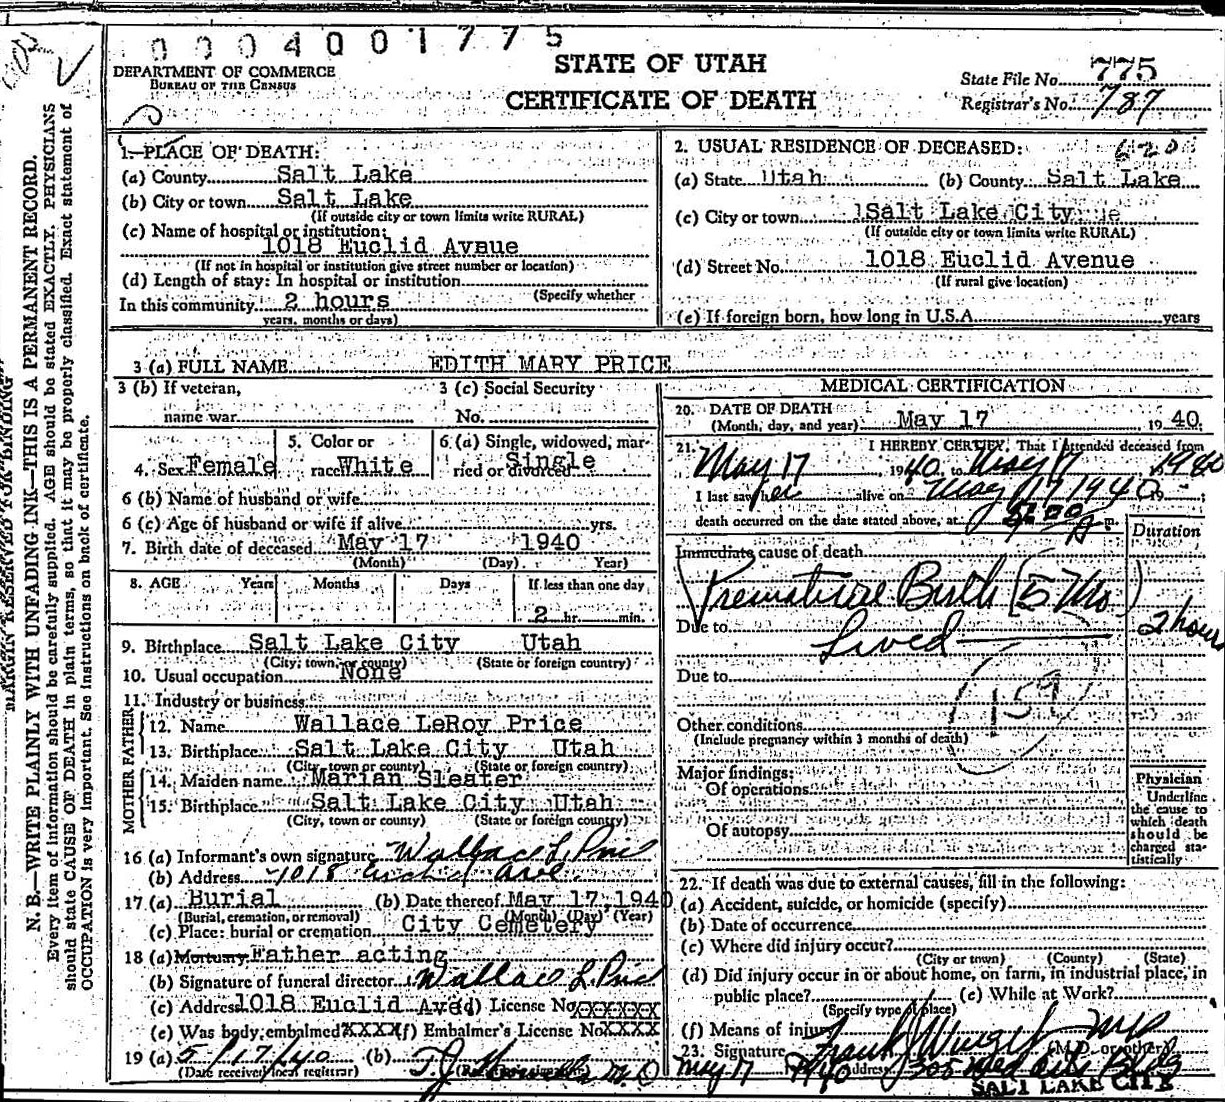 0004001775
DEPARTMENT OF COMMERCE
BUREAU OF THE CENSUS
STATE OF UTAH
CERTIFICATE OF DEATH
State File No. 775
Registrar's No. 787
MARGIN RESERVED FOR BINDING
N. B.—WRITE PLAINLY WITH UNFADING INK—THIS IS A PERMANENT RECORD.
Every item of information should be carefully supplied. AGE should be stated EXACTLY. PHYSICIANS
should state CAUSE OF DEATH in plain terms, so that it may be properly classified. Exact statement of
OCCUPATION is very important. See instructions on back of certificate.
1. PLACE OF DEATH:
(a) County Salt Lake
(b) City or town Salt Lake
(If outside city or town limits write RURAL)
(c) Name of hospital or institution:
1018 Euclid Avnue
(If not in hospital or institution give street number or location)
(d) Length of stay: In hospital or institution
(Specify whether
In this community 2 hours
years, months or days)
2. USUAL RESIDENCE OF DECEASED:
(a) State Utah (b) County Salt Lake
(c) City or town Salt Lake City
(If outside city or town limits write RURAL)
(d) Street No. 1018 Euclid Avenue
(If rural give location)
(e) If foreign born, how long in U.S.A. years
3 (a) FULL NAME EDITH MARY PRICE
3 (b) If veteran,
name war
3 (c) Social Security
No.
4. Sex Female
5. Color or
race White
6. (a) Single, widowed, mar-
ried or divorced Single
6 (b) Name of husband or wife
6 (c) Age of husband or wife if alive yrs.
7. Birth date of deceased May 17 1940
(Month) (Day) Year)
8. AGE Years Months Days If less than one day
2 hr. min.
9. Birthplace Salt Lake City Utah
(City, town, or county) (State or foreign country)
10. Usual occupation None
11. Industry or business
FATHER
12. Name Wallace LeRoy Price
13. Birthplace Salt Lake City Utah
(City, town or county) (State or foreign country)
MOTHER
14. Maiden name Marian Sleater
15. Birthplace Salt Lake City Utah
(City, town or county) (State or foreign country)
16 (a) Informant's own signature Wallace L. Price
(b) Address 1018 Euclid Ave.
17 (a) Burial (b) Date thereof May 17, 1940
(Burial, cremation, or removal) (Month) (Day) (Year)
(c) Place: burial or cremation City Cemetery
18 (a) Mortuary Father acting
(b) Signature of funeral director Wallace L. Price
(c) Address 1018 Euclid Ave (d) License No. XXXXXX
(e) Was body embalmed? XXXX (f) Embalmer's License No XXXX
19 (a) 5/17/40 (b) T.J. M.D.
(Date received local registrar)
MEDICAL CERTIFICATION
20. DATE OF DEATH
(Month, day, and year) May 17 1940
21. I HEREBY CERTIFY, That I attended deceased from
May 17 1940, to May 17 1940
I last saw her alive on May 17 1940 19 ;
death occurred on the date stated above, at m.
Immediate cause of death
Duration
Premature Birth [5 Mo)
Due to Lived 2 hours
Due to
159
Other conditions
(Include pregnancy within 3 months of death)
Major findings:
Of operations
Of autopsy
Physician
Underline
the cause to
which death
should be
charged sta-
tistically
22. If death was due to external causes, fill in the following:
(a) Accident, suicide, or homicide (specify)
(b) Date of occurrence
(c) Where did injury occur?
(City or town) (County) (State)
(d) Did injury occur in or about home, on farm, in industrial place, in
public place? (e) While at Work?
(Specify type of place)
(f) Means of injury
23. Signature Frank J. MD
(M.D. or other)
May 17 1940 Address 305 Med Arts Bldg
SALT LAKE CITY